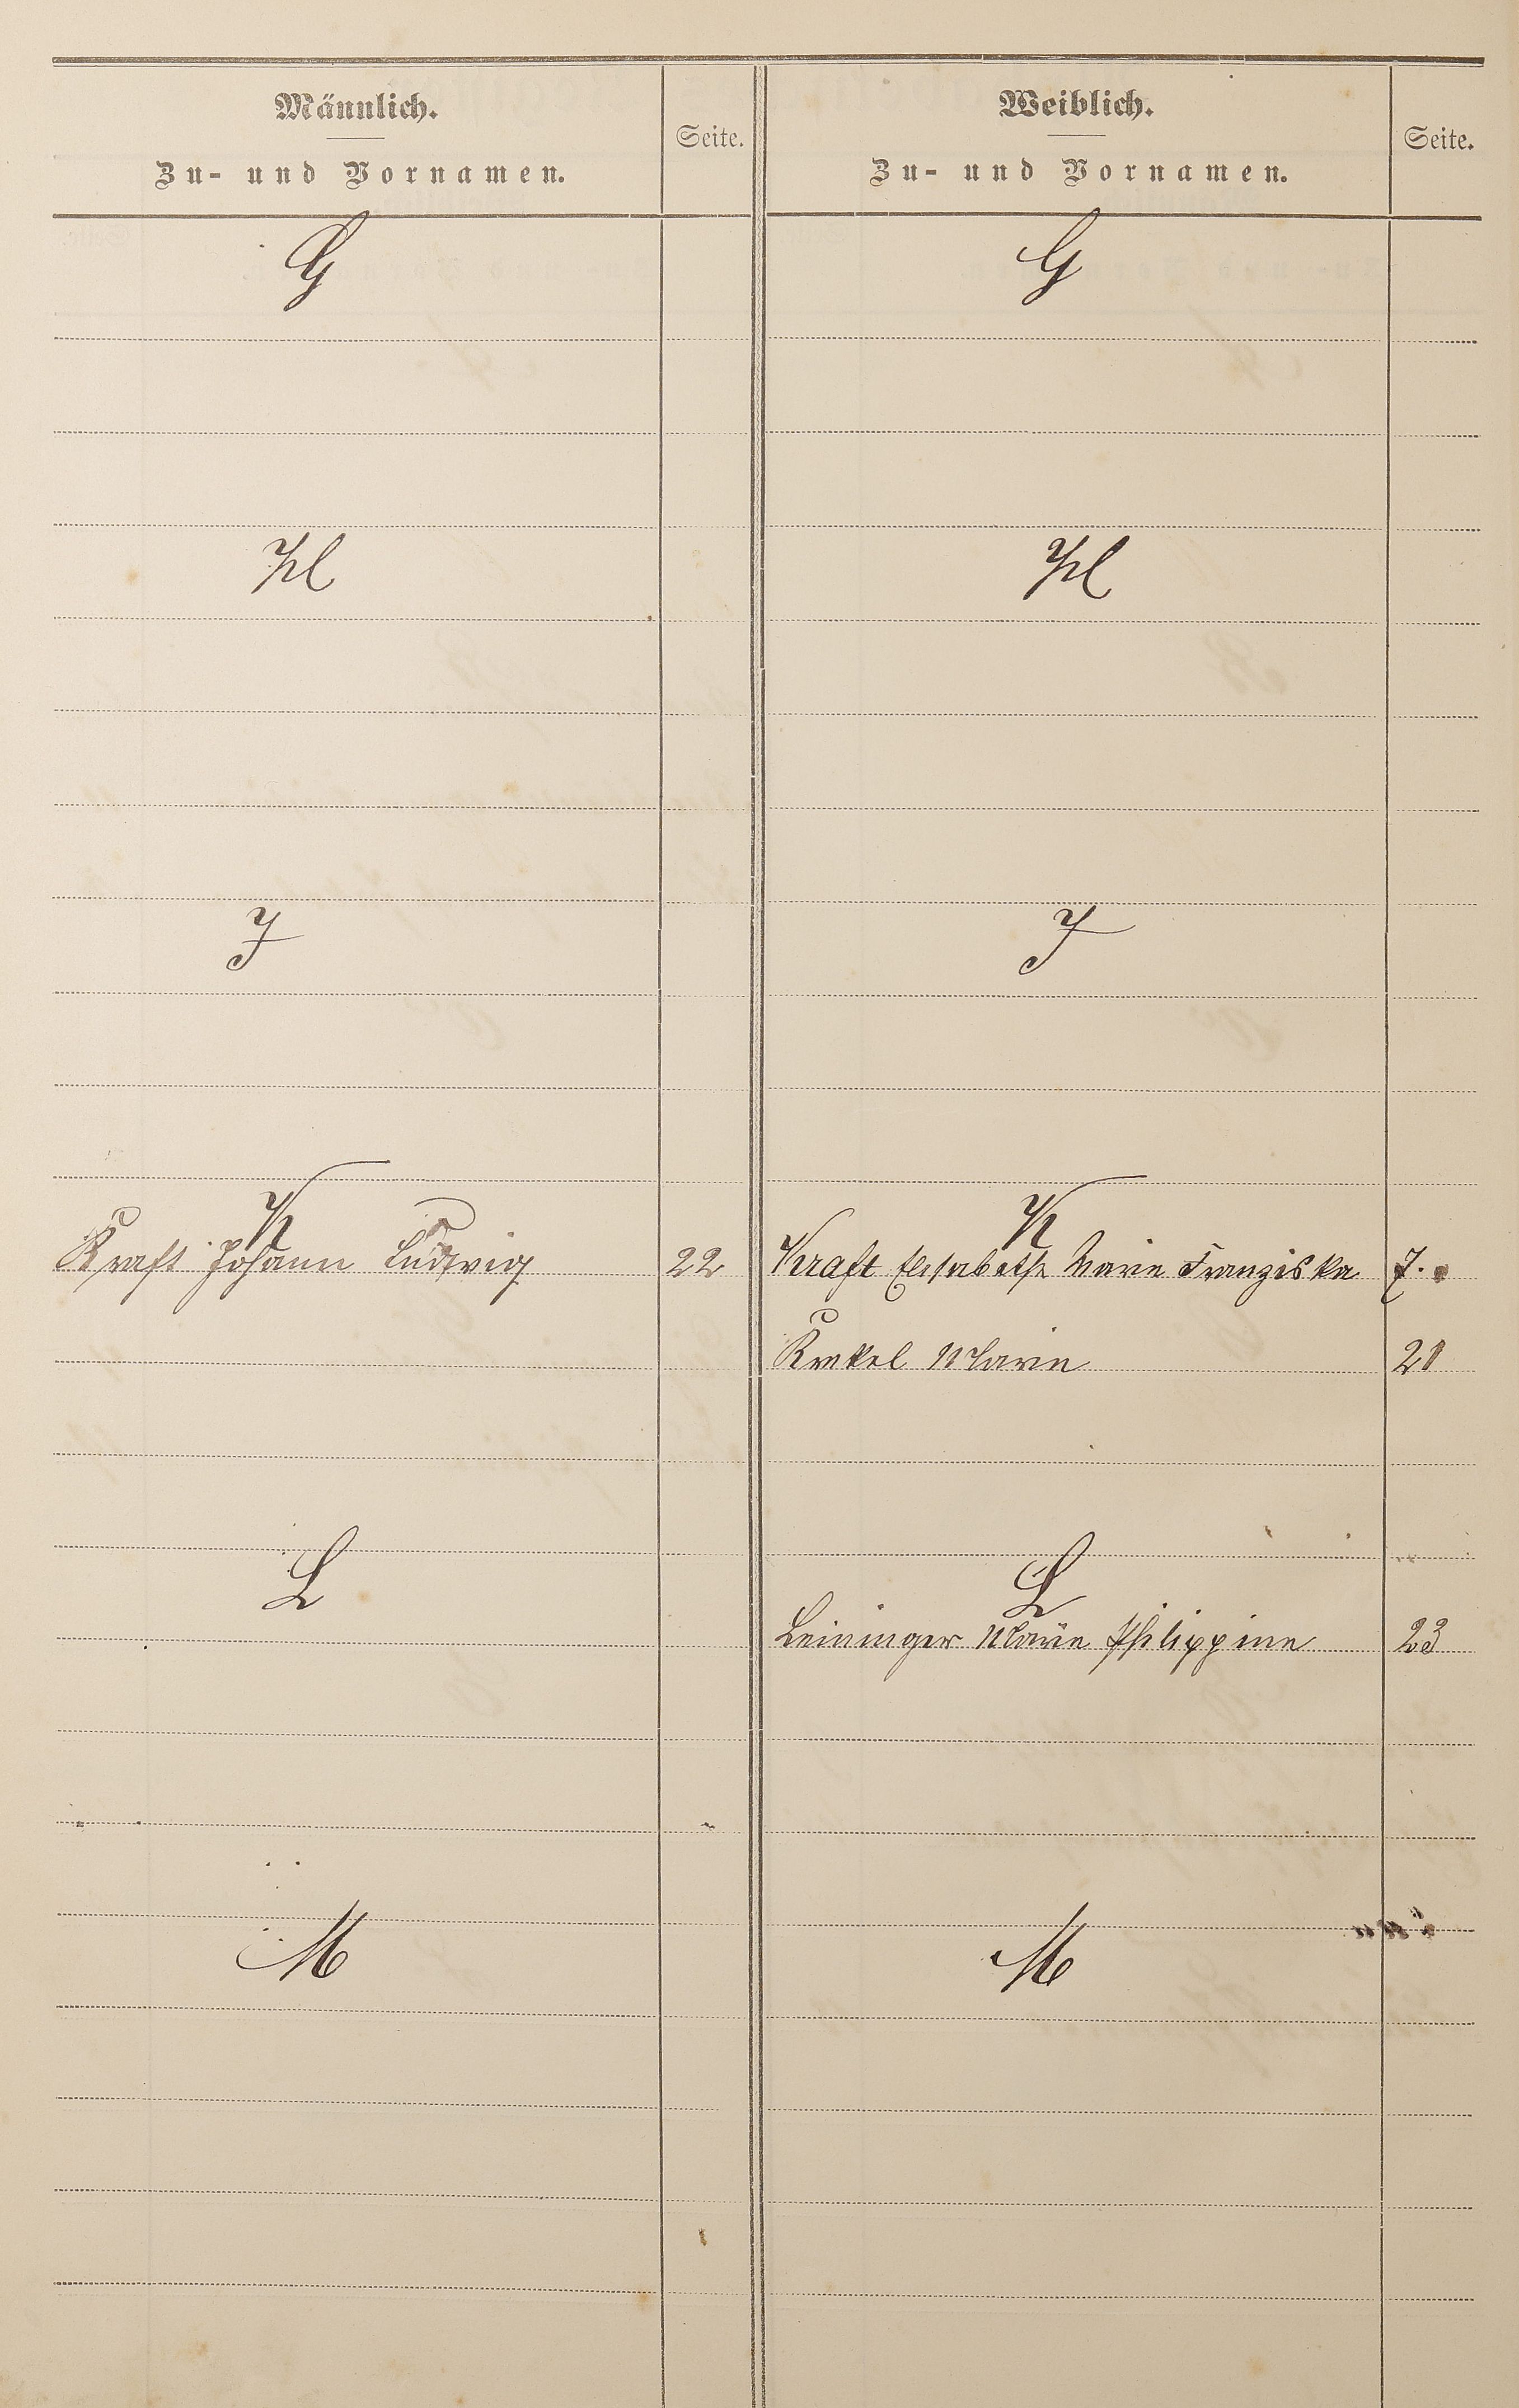 Männlich.
Zu- und Vornamen.
Seite.
Weiblich.
Zu- und Vornamen.
Seite.
G
G
H
H
J
J
K
K
Kraft Johann Ludwig 22
Kraft Elisabeth Marie Franziska 7.
Krekel Marie 21
L
L
Leininger Marie Philippine 23
M
M